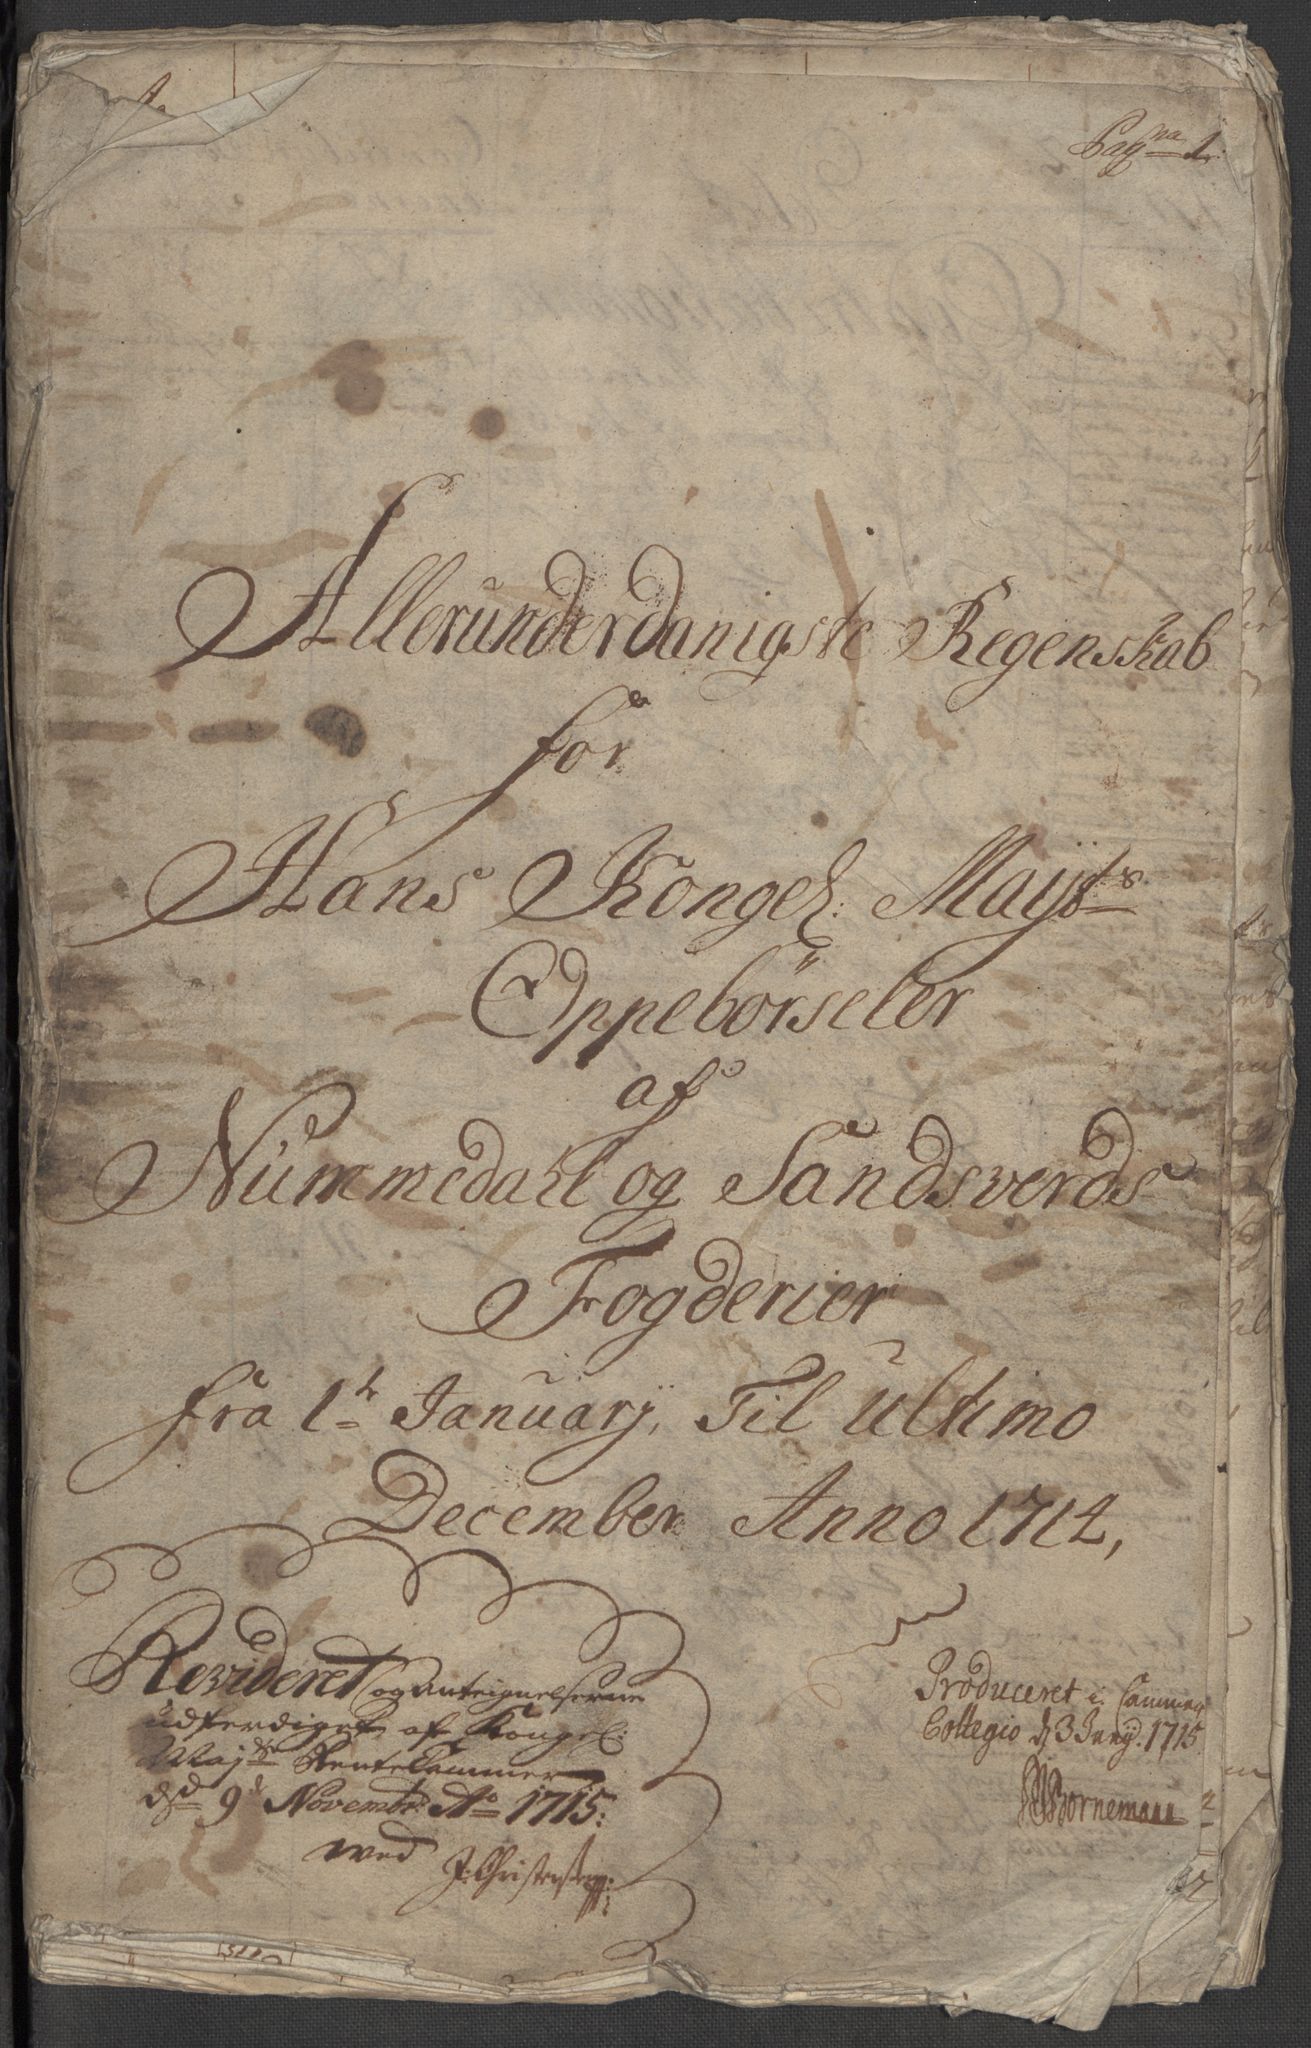 Pagna 1.
Allerunderdanigste Regenskab
for
Hans Kongel: Mayts
Oppebörseler
af
Nummedahl og Sandsverds
Fogderier
fra 1te January, Til ultimo
December Anno 1714,
Revideret og anteignelserne
udferdiget af Kongel:
Majts RenteCammer
d 9d Novembr: Ao 1715:
wed
Produceret i Cammer
Collegio d 3 Juny. 1715
Bornemann